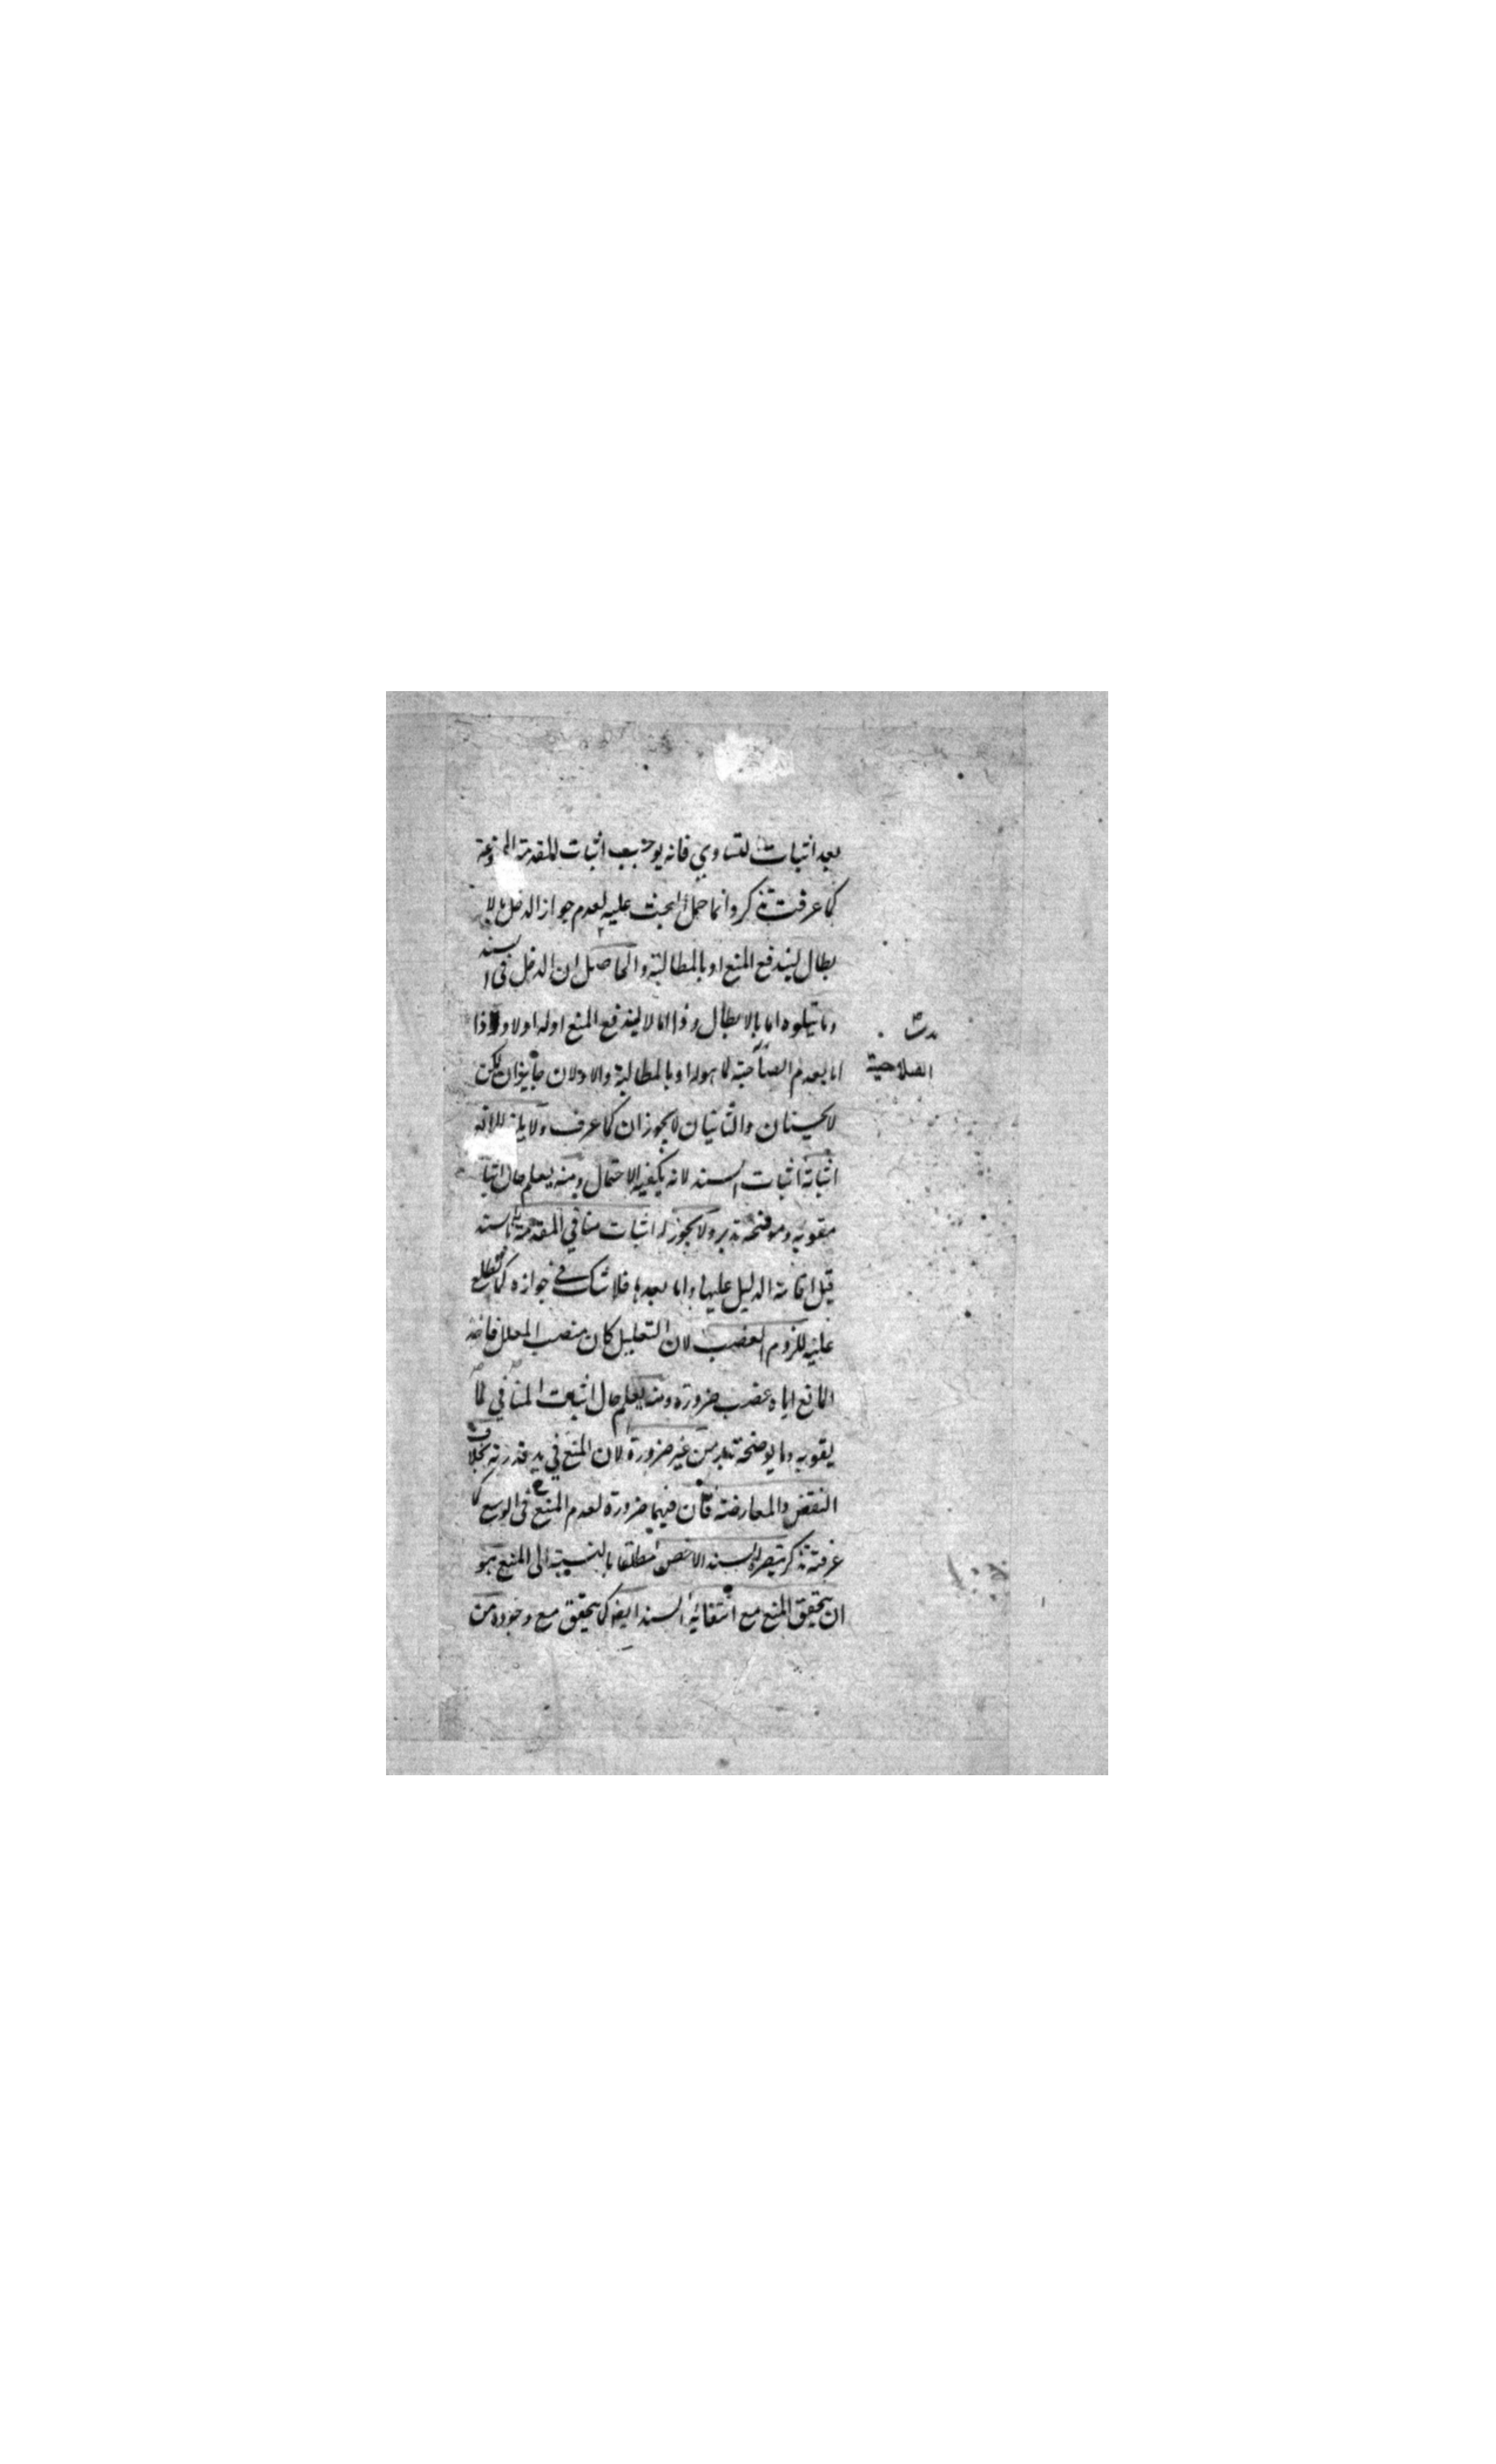 بعد اثبات التساوي فانه يوجب اثبات المقدمة الممنوعة
كما عرفت تذكر وانما حمل البحث عليه لعدم جواز الدخل بالا
بطال ليندفع المنع او بالمطالبة والحاصل ان الدخل فى السند
وما يتلوه اما بالابطال وذا اما لا ليندفع المنع او له او لا ولا ذا
اما بعدم الصلاحية لا هو له او بالمطالبة والاولان جايزان لكن
لا يحسنان والثانيان لا يجوزان كما عرف ولا يلزم
اثباته اثبات السند لانه يكفيه الاحتمال ومنه يعلم حال اثبات
مقويه وموضحه تدبر ولا يجوز له اثبات منافي المقدمة
قبل اقامة الدليل عليها واما بعدها فلا شك في جوازه كما
عليه للزوم الغصب لان التعليل كان منصب المعلل فاخذ
المانع اياه غصب ضرورة ومنه يعلم حال اثبات المنافي لما
يقويه وما يوضحه تدبر من غير ضرورة لان المنع في يد بخلاف
النقض والمعارضة فان فيهما ضرورة لعدم المنع فى الوسع كما
عرفته تذكر تبصرة السند الاخص مطلقا بالنسبة الى المنع هو
ان يتحقق المنع مع انتفائه السند ايضا كما يتحقق مع وجوده من
الصلاحية